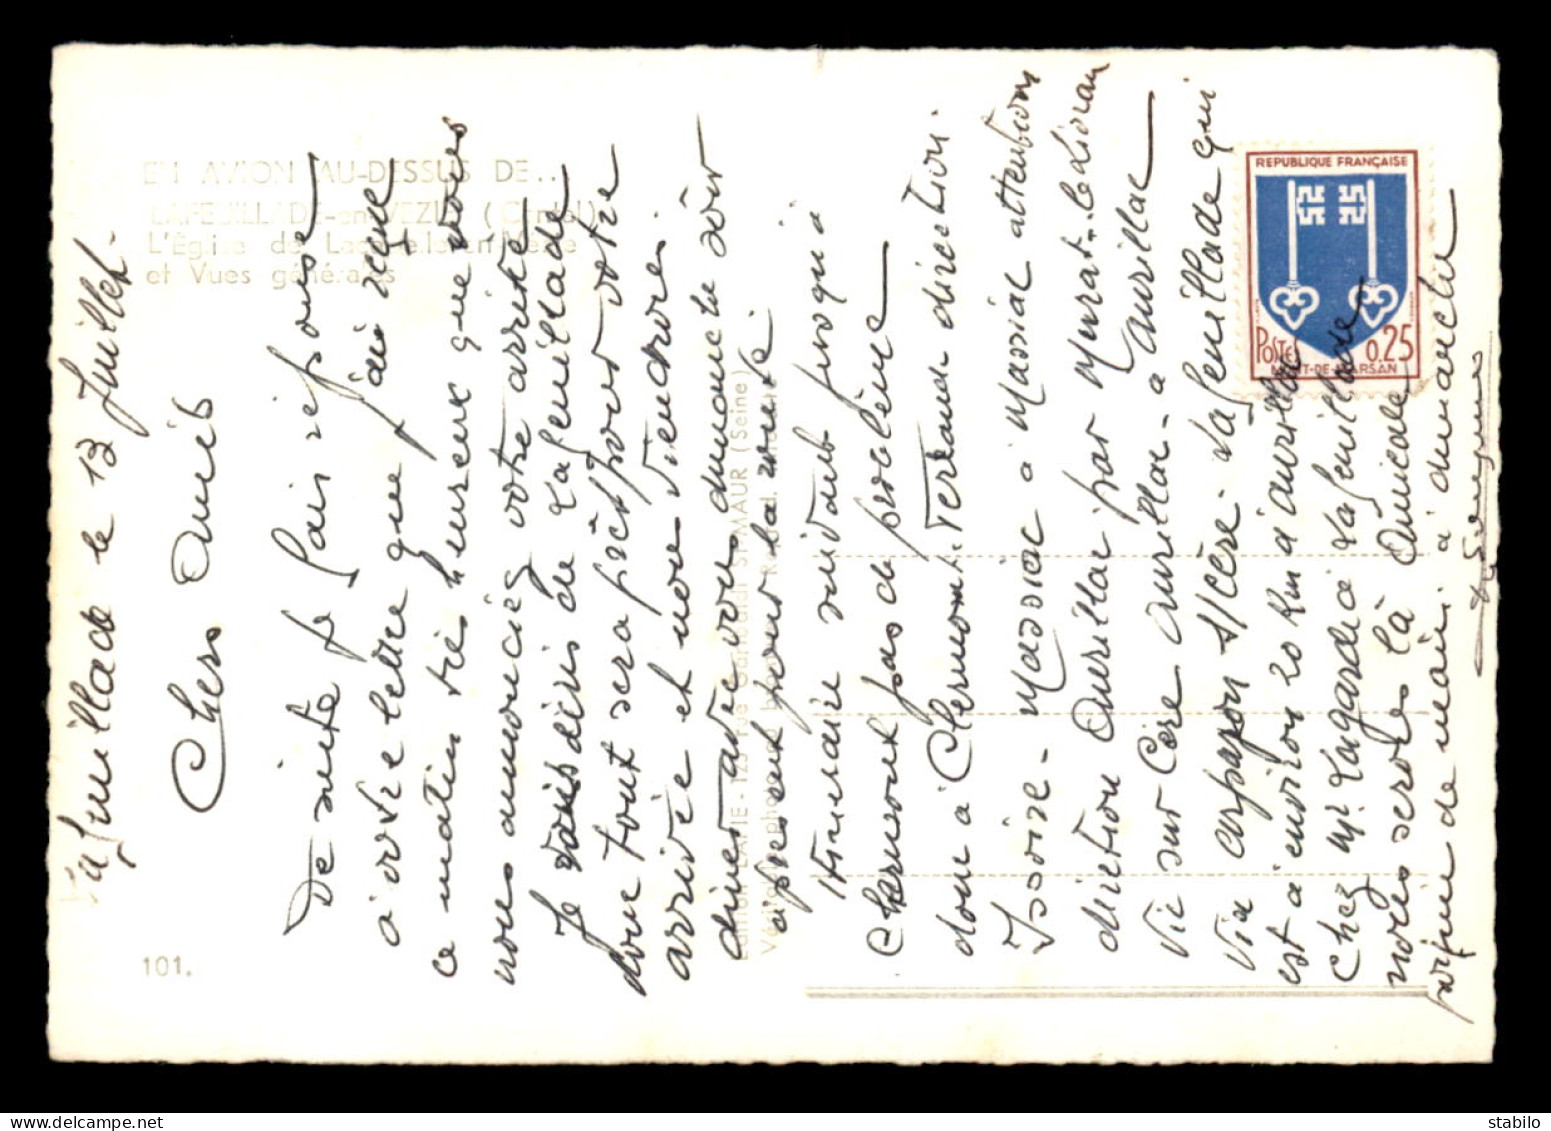 EN AVION AU-DESSUS DE...
LAFEUILLADE-en-VEZIE (Cantal)
L'Eglise de Lacapelle-en-Vezie
et Vues générales
101.
Edition LAPIE - 123 rue Garibaldi St-MAUR (Seine)
Véritable photographie
REPUBLIQUE FRANÇAISE
POSTES 0,25
MONT-DE-MARSAN
Lafeuillade le 13 Juillet.
Chers Amis
De suite je fais réponse
à votre lettre que
ce matin très heureux que vous
nous annonciez votre arrivée
Je vais de Lafeuillade
donc tout sera prêt pour votre
arrivée et nous viendrons
diner avec vous dimanche soir
après
Itineraire suivant jusqu'a
Clermont pas de problème
donc a Clermont-Ferrand direction.
Issoire - Massiac a Massiac attention
direction Aurillac par Murat. le Lioran
Vic sur Cère Aurillac. a Aurillac
Via Arpajon s/cère. Lafeuillade qui
est a environ 20 Km d'aurillac
Chez Mr Lagarde a Lafeuillade
nous serons là Amicale
poignée de main. a dimanche